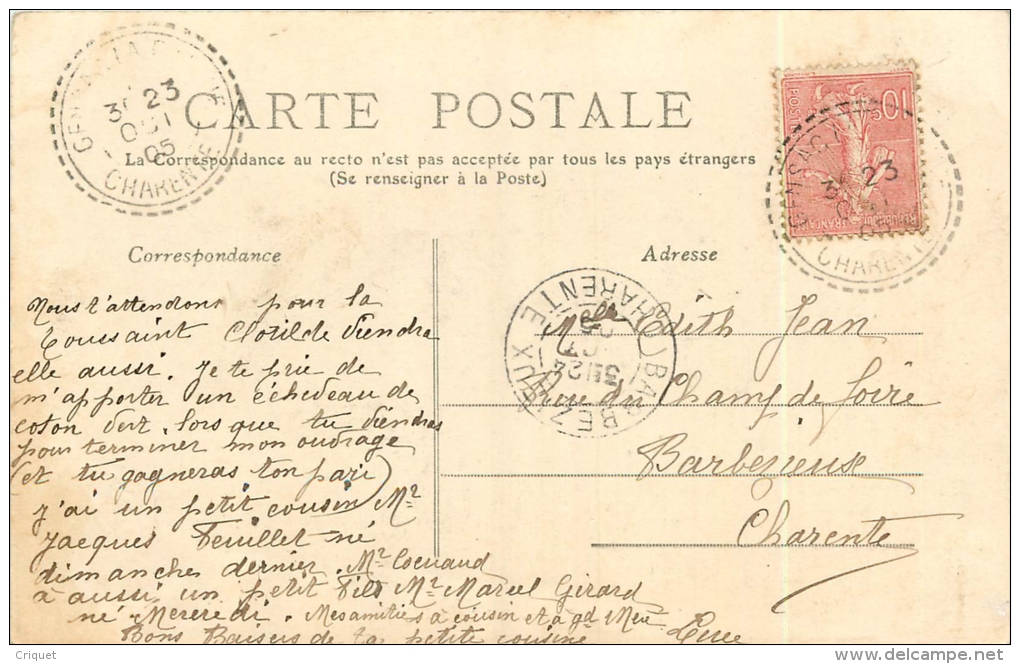 CARTE POSTALE
La Correspondance au recto n'est pas acceptée par tous les pays étrangers
(Se renseigner à la Poste)
CHARENTE
23
05
10
POSTES
REPUBLIQUE FRANÇAISE
GENSAC
23
CHARENTE
Correspondance
Adresse
BARBEZIEUX
(CHARENTE)
Nous t'attendons pour la
Toussaint Clotilde viendra
elle aussi. Je te prie de
m'apporter un écheveau de
coton vert, lors que tu viendras
pour terminer mon ouvrage
(et tu gagneras ton pari)
j'ai un petit cousin Mr
Jacques Feuillet né
dimanche dernier. Mr
à aussi un petit fils Mr Marcel Girard
né Mereredi. Mes amitiés à cousin et à gd
Bons Baisers de ta petite cousine
Melle Edith Jean
du Champ de foire
Barbezieux
Charente
© Criquet
delcampe.net